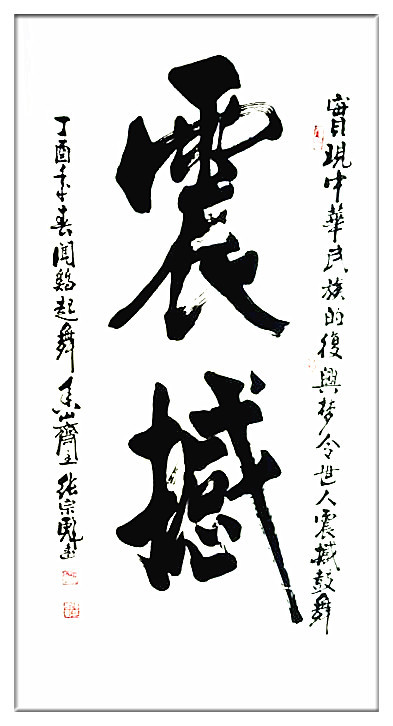 實現中華民族的復興梦令世人震撼鼓舞
震撼
丁酉年春聞鷄起舞 山齋主 张宗